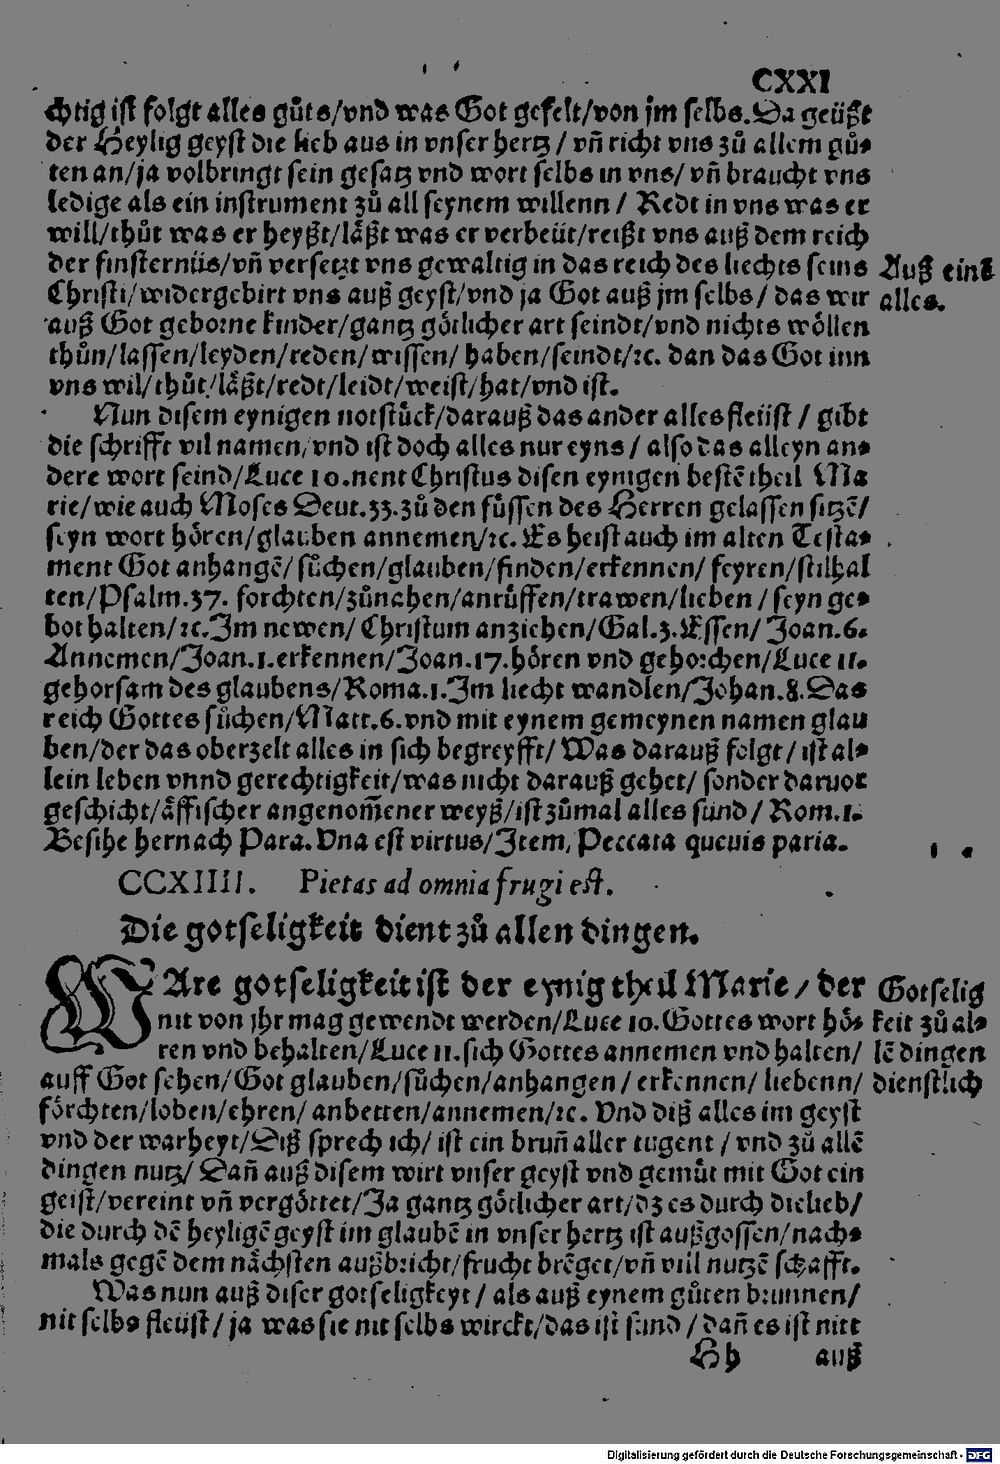 CXXI
chtig ist folgt alles gůts/vnd was Got gefelt/von jm selbs. Da geüßt
der Heylig geyst die lieb aus in vnser hertz / vñ richt vns zů allem gů-
ten an/ja volbringt sein gesatz vnd wort selbs in vns/ vñ braucht vns
ledige als ein instrument zů all seynem willenn / Redt in vns was er
will/thůt was er heyßt/läßt was er verbeüt/reißt vns auß dem reich
der finsternüs/vñ versetzt vns gewaltig in das reich des liechts seins
Christi/widergebirt vns auß geyst/vnd ja Got auß jm selbs/ das wir
auß Got geborne kinder/gantz götlicher art seindt/vnd nichts wöllen
thůn/lassen/leyden/reden/wissen/ haben/seindt/ꝛc. dan das Got inn
vns wil/thůt/läßt/redt/leidt/weist/hat/vnd ist.
Auß eins
alles.
Nun disem eynigen notstück/darauß das ander alles fleüst / gibt
die schrifft vil namen/vnd ist doch alles nur eyns / also das alleyn an-
dere wort seind/Luce 10.nent Christus disen eynigen bestē theil Ma
rie/wie auch Moses Deut.33.zů den füssen des Herren gelassen sitzē/
seyn wort hören/glauben annemen/ꝛc. Es heist auch im alten Testa-
ment Got anhangē/sůchen/glauben/finden/erkennen/ feyren/stilhal
ten/Psalm.37. forchten/zůnahen/anrüffen/trawen/lieben / seyn ge-
bot halten/ꝛc.Im newen/ Christum anziehen/Gal.3.Essen/ Joan.6.
Annemen/Joan.1.erkennen/Joan.17.hören vnd gehorchen/Luce 11.
gehorsam des glaubens/Roma.1.Im liecht wandlen/Johan.8.Das
reich Gottes sůchen/Matt.6.vnd mit eynem gemeynen namen glau
ben/der das oberzelt alles in sich begreyfft/ Was darauß folgt / ist al-
lein leben vnnd gerechtigkeit/was nicht darauß gehet/ sonder daruor
geschicht/äffischer angenom̄ener weyß/ist zůmal alles sünd / Rom.1.
Besihe hernach Para. Vna est virtus/Item, Peccata queuis paria.
CCXIIII. Pietas ad omnia frugi est.
Die gotseligkeit dient zů allen dingen.
WAre gotseligkeit ist der eynig theil Marie / der
nit von jhr mag gewendt werden/Luce 10. Gottes wort hö-
ren vnd behalten/Luce 11.sich Gottes annemen vnd halten/
auff Got sehen/Got glauben/sůchen/anhangen / erkennen/ liebenn/
förchten/loben/ehren/ anbetten/annemen/ꝛc. Vnd diß alles im geyst
vnd der warheyt/Diß sprech ich/ ist ein brun̄ aller tugent / vnd zů allē
dingen nutz/ Dan̄ auß disem wirt vnser geyst vnd gemůt mit Got ein
geist/vereint vñ vergöttet/Ja gantz götlicher art/dz es durch die lieb/
die durch dē heyligē geyst im glaubē in vnser hertz ist außgossen/nach-
mals gegē dem nächsten außbricht/frucht brēget/vñ viil nutzē schafft.
Gotselig
keit zů al-
lē dingen
dienstlich
Was nun auß diser gotseligkeyt / als auß eynem gůten brunnen/
nit selbs fleüst / ja was sie nit selbs wirckt/das ist sünd / dan̄ es ist nitt
Hh auß
Digitalisierung gefördert durch die Deutsche Forschungsgemeinschaft - DFG